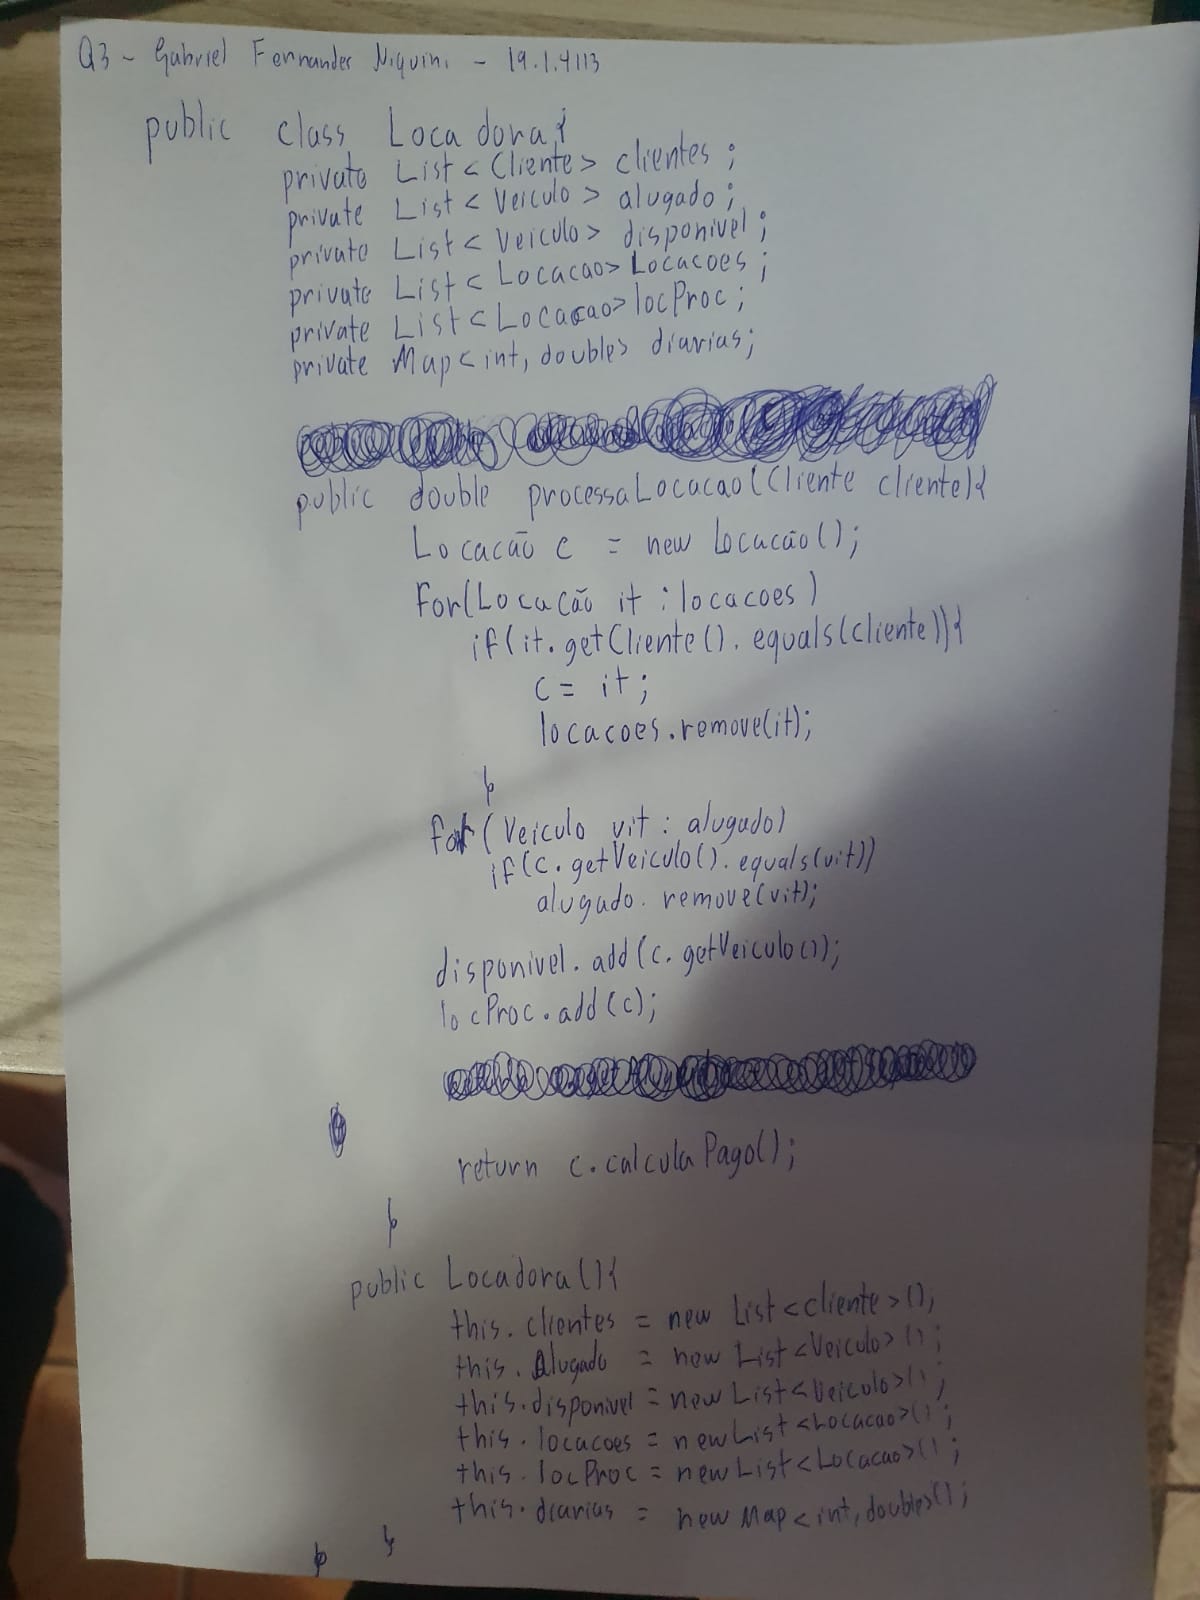 Q3 - Gabriel Fernandes Niquini - 19.1.4113
public class Locadora{
private List<Cliente> clientes;
private List<Veiculo> alugado;
private List<Veiculo> disponivel;
private List<Locacao> Locacoes;
private List<Locacao> locProc;
private Map<int, double> diarias;
public double processaLocacao(Cliente cliente){
Locacão c = new Locacão();
for(Locacão it : locacoes)
if(it.getCliente().equals(cliente)){
c = it;
locacoes.remove(it);
}
for(Veiculo vit : alugado)
if(c.getVeiculo().equals(vit))
alugado.remove(vit);
disponivel.add(c.getVeiculo());
locProc.add(c);
return c.calculaPago();
}
public Locadora(){
this.clientes = new List<cliente>();
this.Alugado = new List<Veiculo>();
this.disponivel = new List<Veiculo>();
this.locacoes = new List<Locacao>();
this.locProc = new List<Locacao>();
this.diarias = new Map<int, double>();
}
}